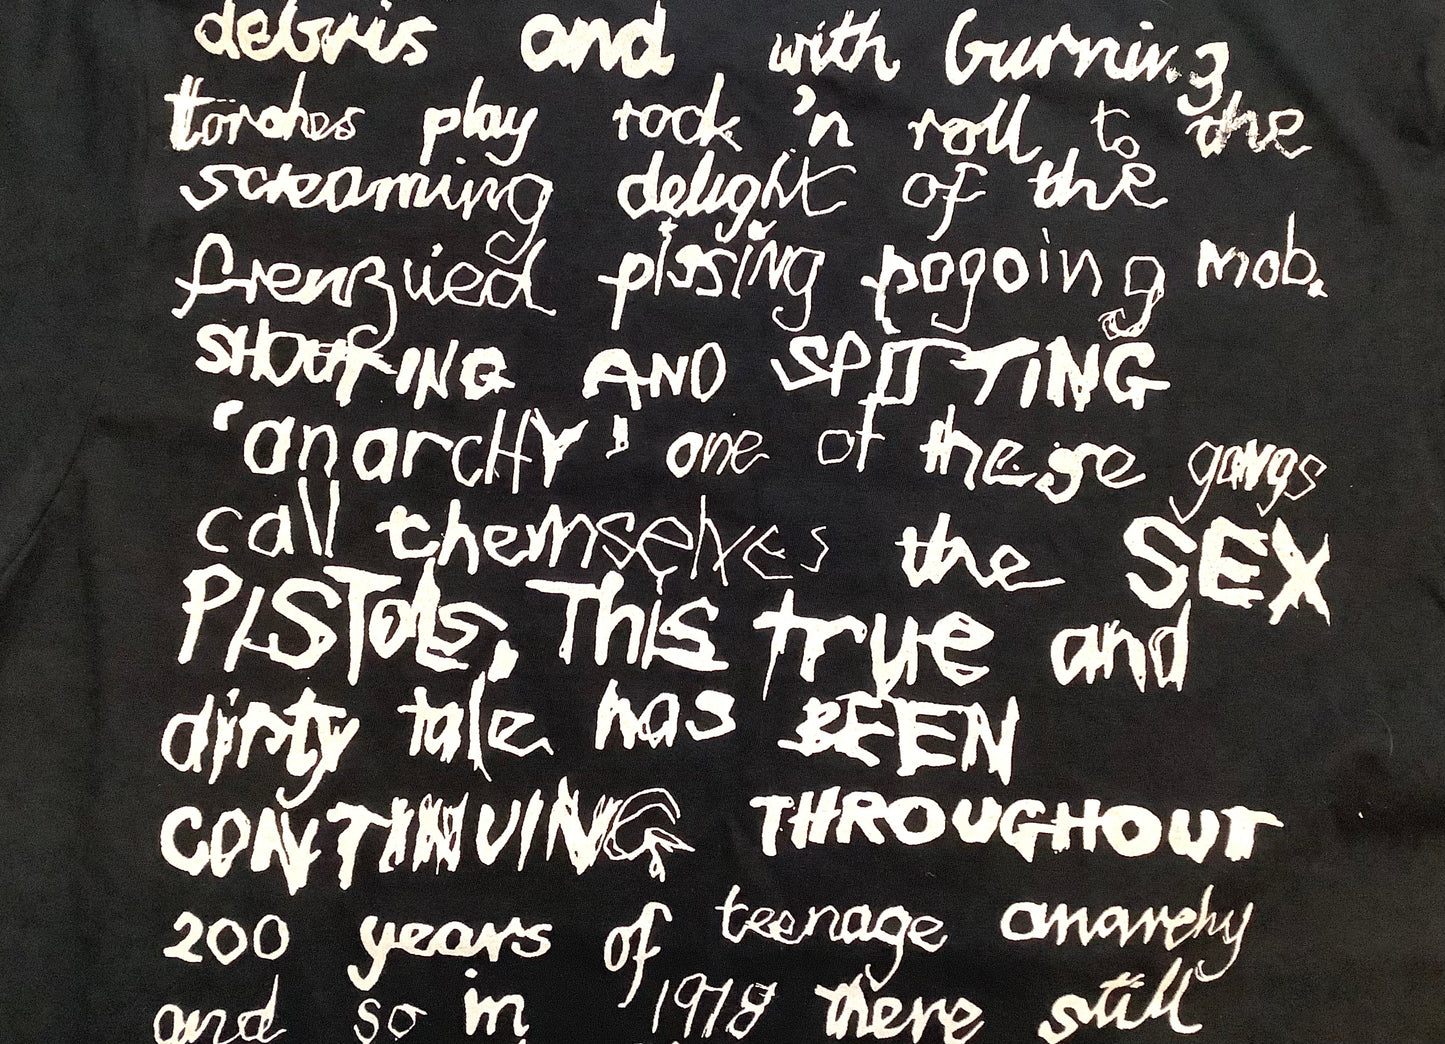 debris and with burning
torches play rock 'n roll to the
screaming delight of the
frenzied pissing pogoing mob.
SHOUTING AND SPITTING
'anarcHY' one of these gangs
call themselves the SEX
PISTols, This true and
dirty tale has BEEN
CONTINUING THROUGHOUT
200 years of teenage anarchy
and so in 1978 there still